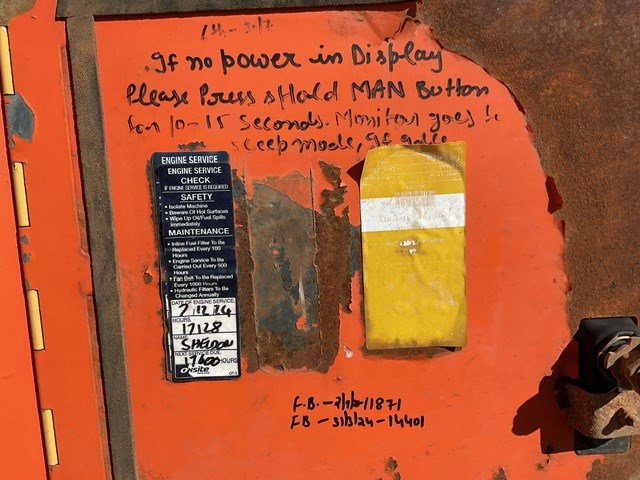 If no power in Display
Please Press & Hold MAN Button
for 10-15 Seconds. Monitor goes to
sleep mode, If
ENGINE SERVICE
ENGINE SERVICE
CHECK
IF ENGINE SERVICE IS REQUIRED
SAFETY
• Isolate Machine
• Beware Of Hot Surfaces
• Wipe Up Oil/Fuel Spills
Immediately
MAINTENANCE
• Inline Fuel Filter To Be
Replaced Every 100
Hours
• Engine Service To Be
Carried Out Every 500
Hours
• Fan Belt To Be Replaced
Every 1000 Hours
• Hydraulic Filters To Be
Changed Annually
DATE OF ENGINE SERVICE:
7.12.24
HOURS:
17128
NAME:
SHELDON
NEXT SERVICE DUE:
17600 HOURS
Onsite
F.B. - 11871
FB - 31/3/24 - 14401